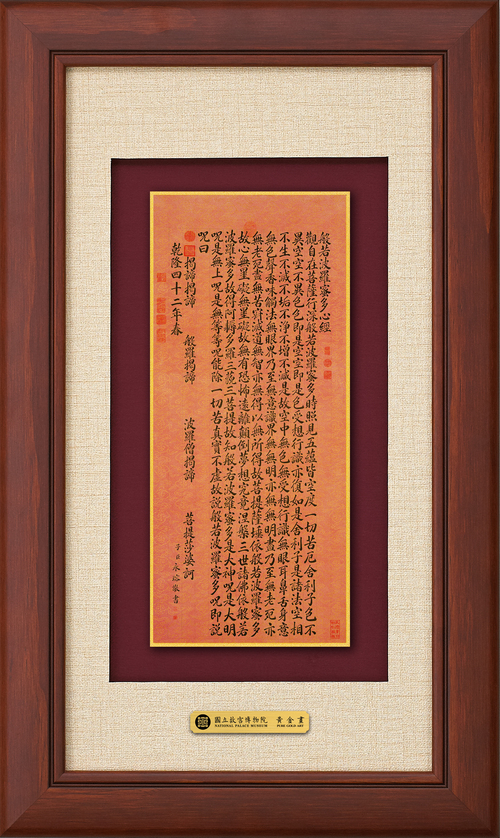 般若波羅蜜多心經
觀自在菩薩行深般若波羅蜜多時照見五蘊皆空度一切苦厄舍利子色不
異空空不異色色即是空空即是色受想行識亦復如是舍利子是諸法空相
不生不滅不垢不淨不增不減是故空中無色無受想行識無眼耳鼻舌身意
無色聲香味觸法無眼界乃至無意識界無無明亦無無明盡乃至無老死亦
無老死盡無苦寂滅道無智亦無得以無所得故菩提薩埵依般若波羅蜜多
故心無罣礙無罣礙故無有恐怖遠離顛倒夢想究竟涅槃三世諸佛依般若
波羅蜜多故得阿耨多羅三藐三菩提故知般若波羅蜜多是大神呪是大明
呪是無上呪是無等等呪能除一切苦真實不虛故說般若波羅蜜多呪即說
呪曰
揭諦揭諦 般羅揭諦 波羅僧揭諦 菩提莎婆訶
乾隆四十二年春
子臣永瑢敬書
國立故宮博物院 黃金畫
NATIONAL PALACE MUSEUM PURE GOLD ART